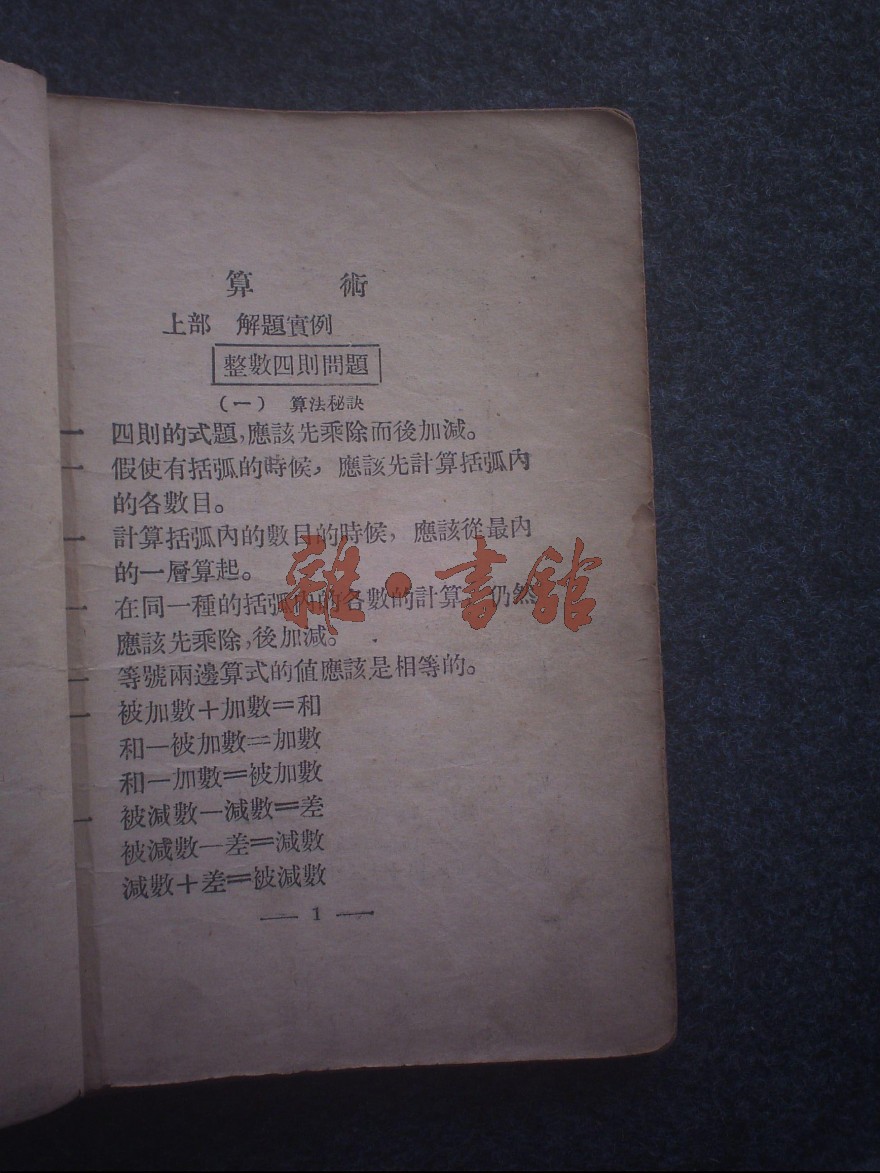 算 術
上部 解題實例
整數四則問題
（一） 算法秘訣
一 四則的式題，應該先乘除而後加減。
一 假使有括弧的時候，應該先計算括弧內
的各數目。
一 計算括弧內的數目的時候，應該從最內
的一層算起。
一 在同一種的括弧內的各數的計算，仍然
應該先乘除，後加減。
一 等號兩邊算式的值應該是相等的。
一 被加數＋加數＝和
和—被加數＝加數
和—加數＝被加數
一 被減數—減數＝差
被減數—差＝減數
減數＋差＝被減數
— 1 —
雜·書館